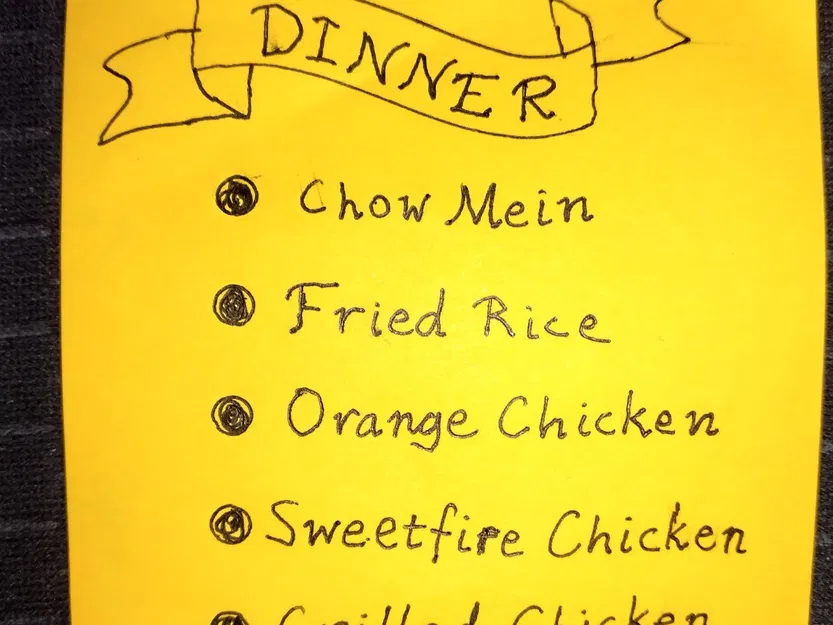 DINNER
Chow Mein
Fried Rice
Orange Chicken
Sweetfire Chicken
Grilled Chicken